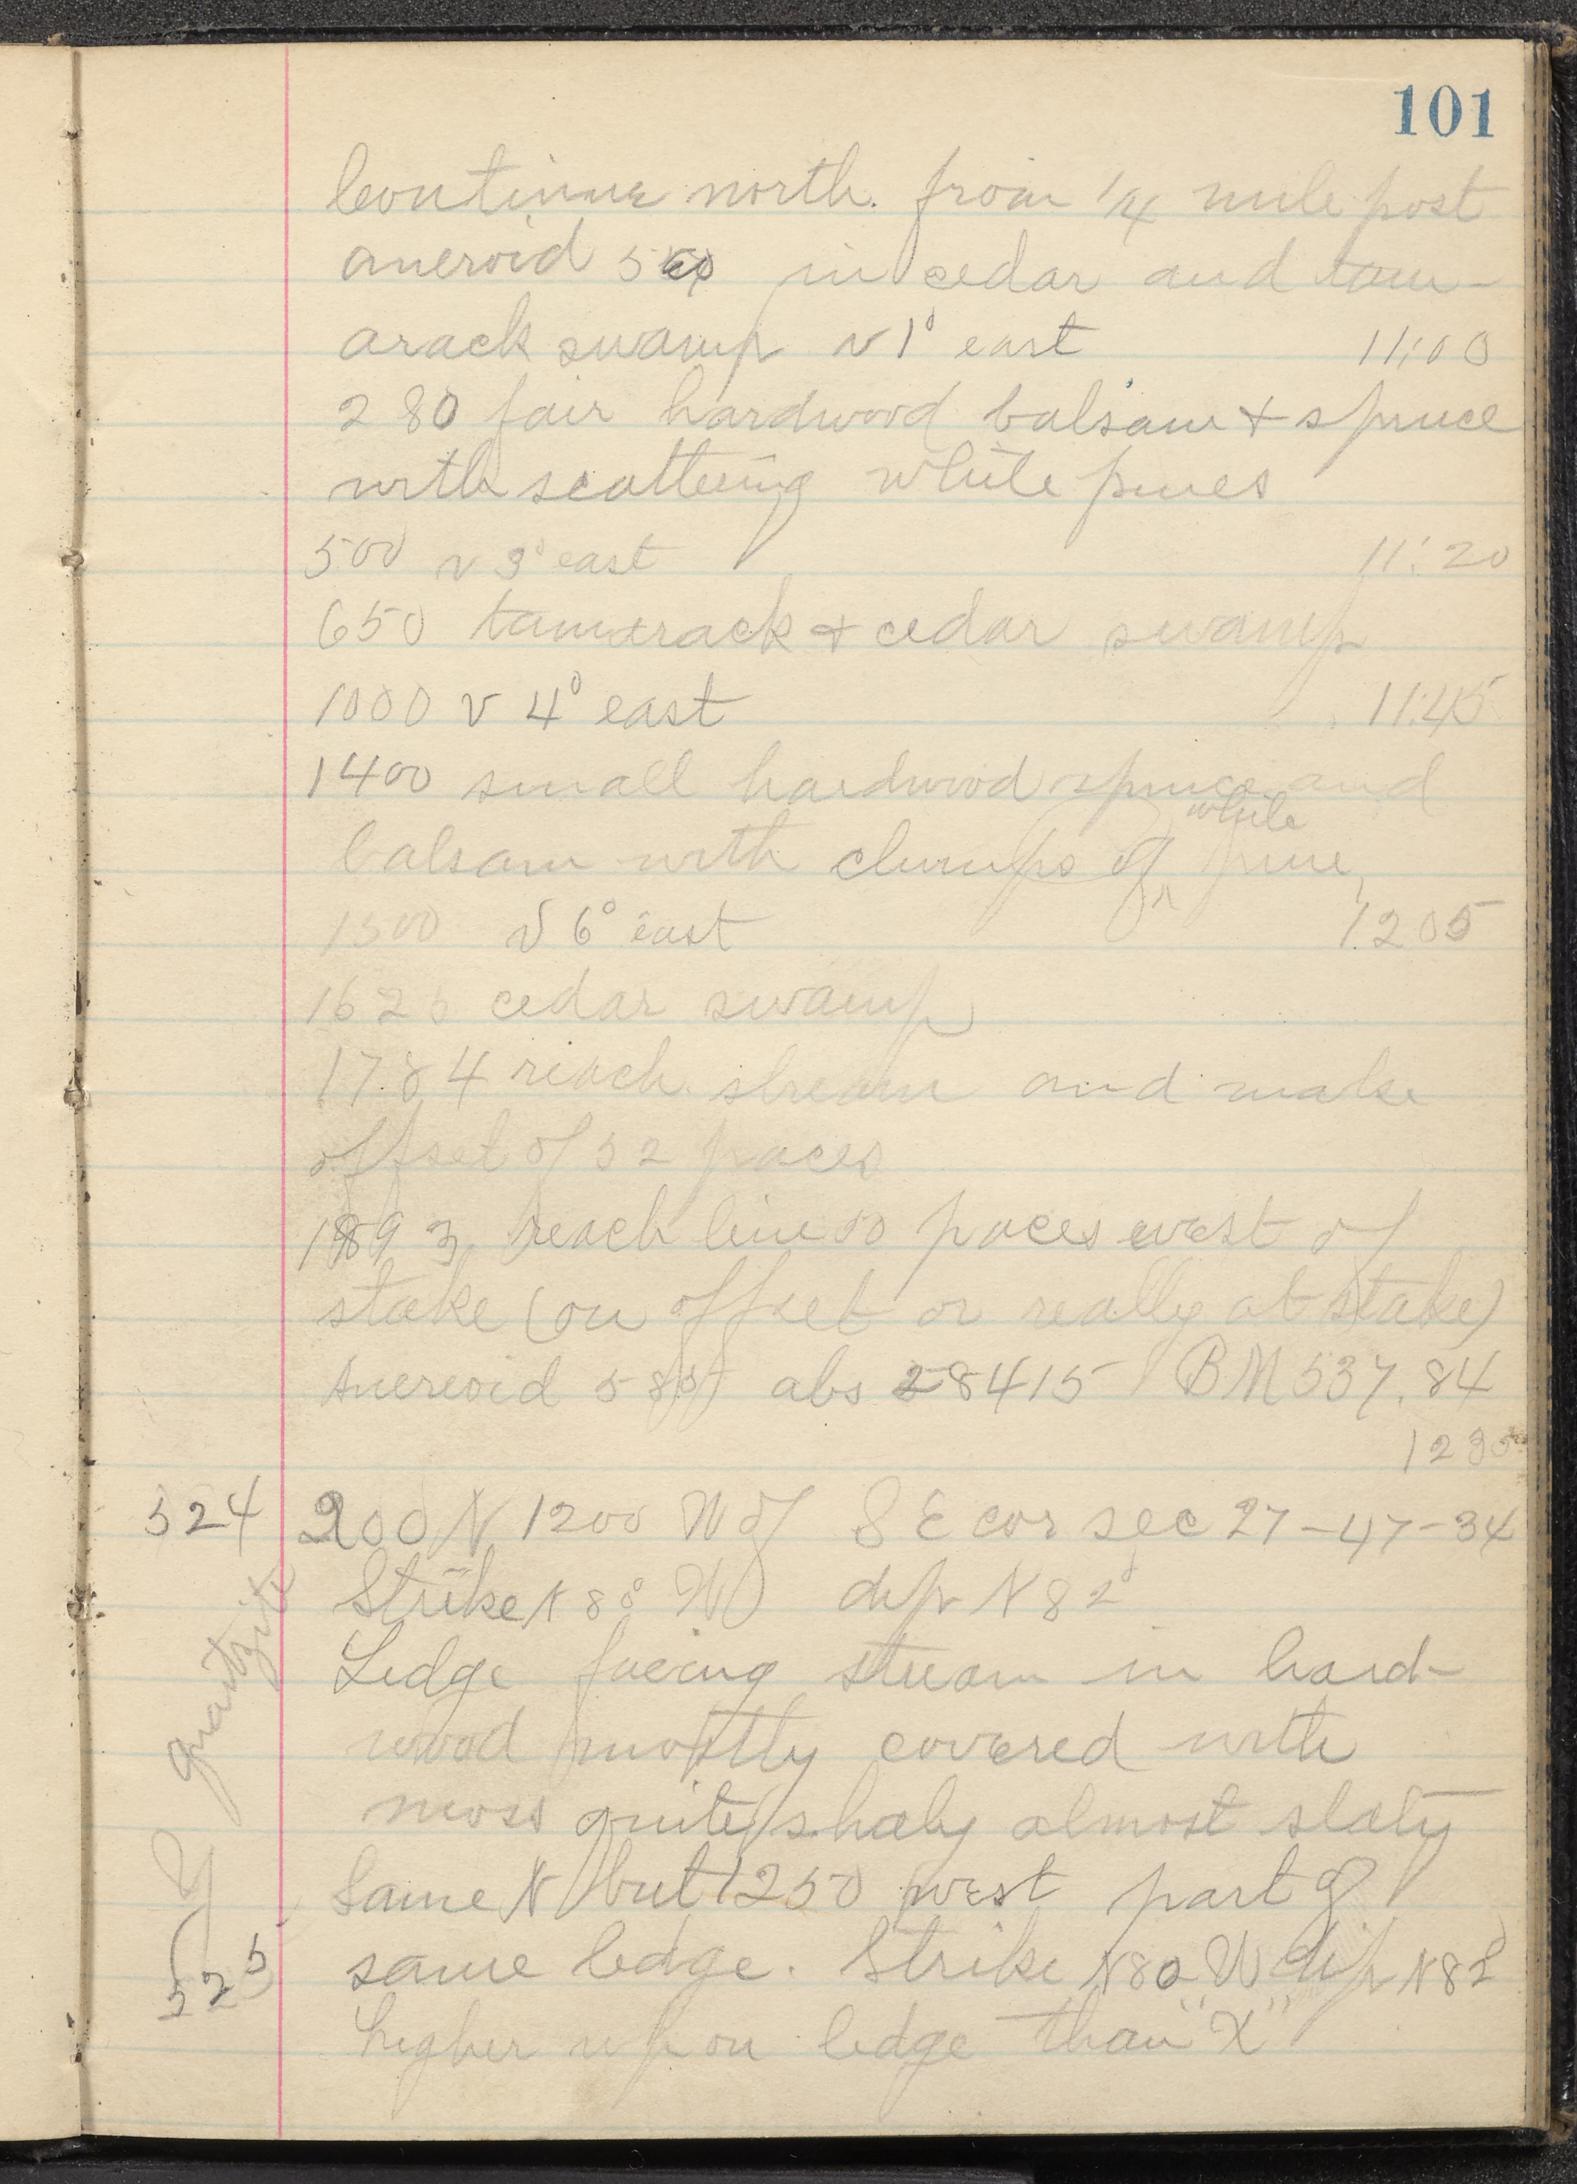 101
Continue north. from 1/4 mile post
aneroid in cedar and tam-
arack swamp v 1° east 11:00
280 fair hardwood balsam + spruce
with scattering white pines
500 v 3° east 11:20
650 tamerack + cedar swamp
1000 v 4° east 11:45
1400 small hardwood spruce and
white
balsam with clumps of ^ pine
1500 v 6° east 1205
1625 cedar swamp
1784 reach stream and make
offset of 52 paces
1893 reach line 50 paces west of
stake (on offset or really at stake)
Anereoid abs 28415 BM 537.84
1230
524 200 N 1200 W of S E cor sec 27-47-34
Strike N 88° W dip N 82°
Ledge facing stream in hard-
quartzite
wood mostly covered with
moss quite shaly almost slaty
Same N but 1250 west part of
525 same ledge. Strike N80W dip N82
higher up on ledge than "X"